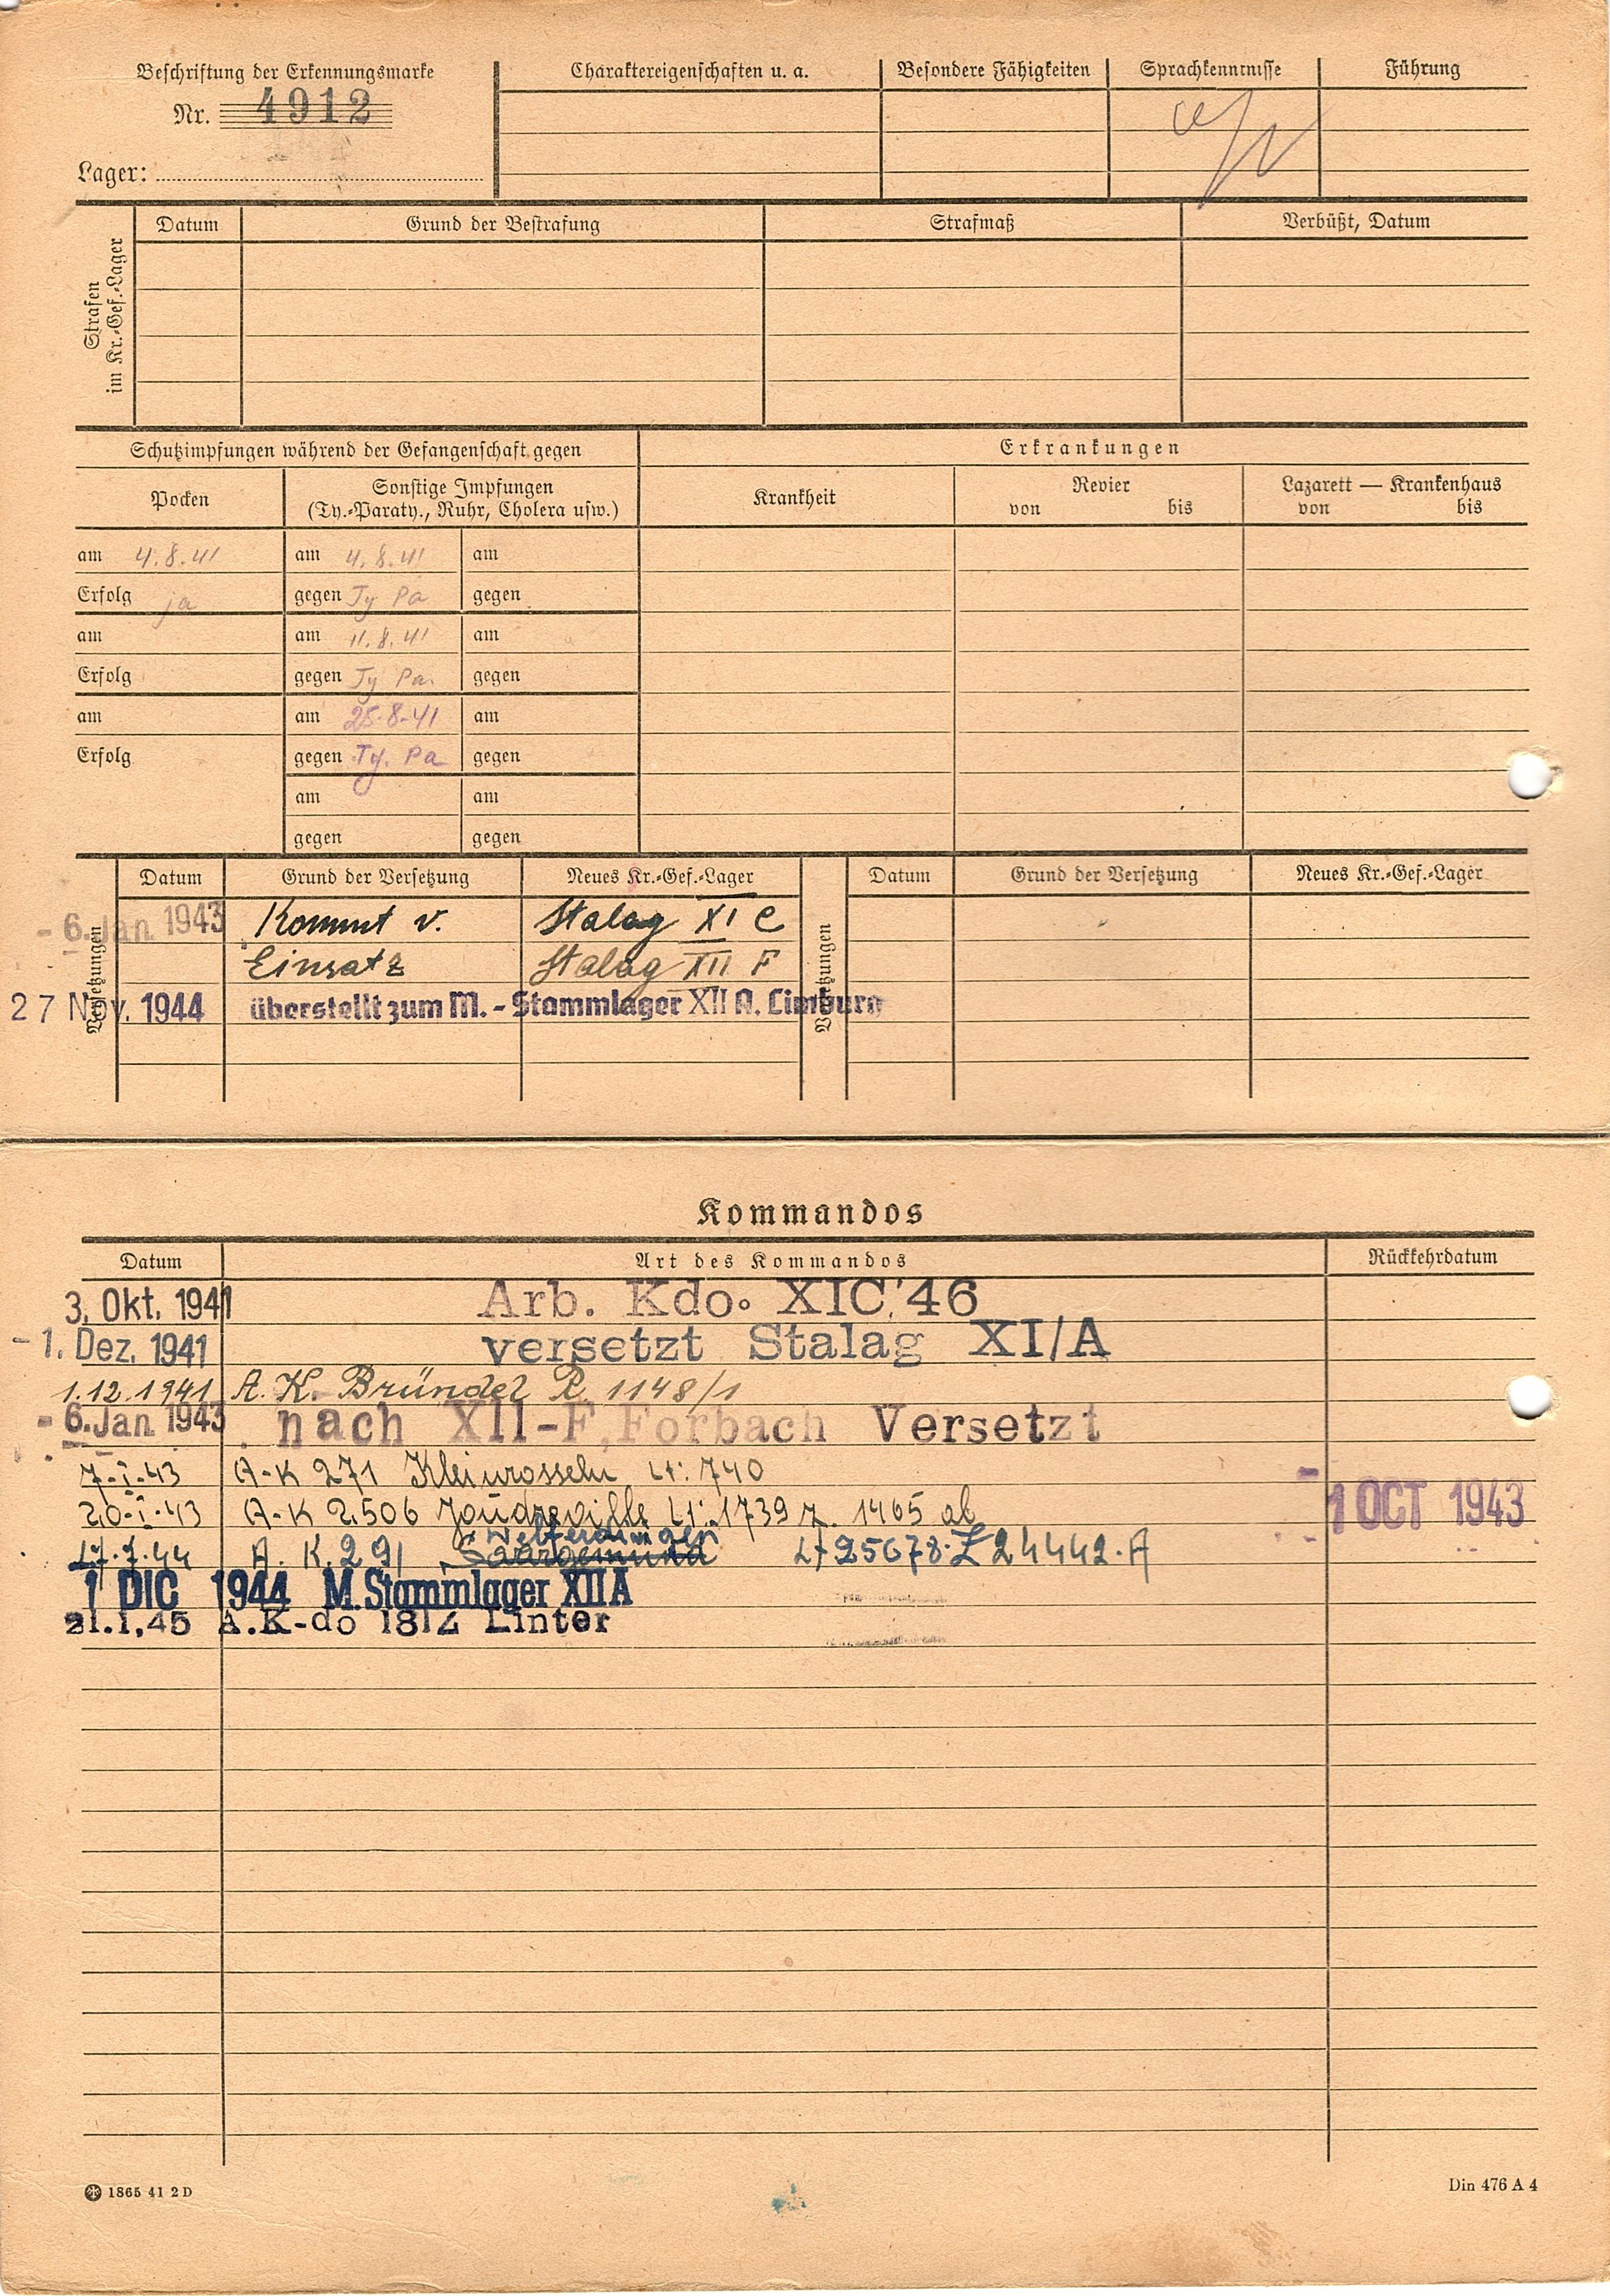 Beschriftung der Erkennungsmarke
Nr. 4912
Lager:
Charaktereigenschaften u. a.
Besondere Fähigkeiten
Sprachkenntnisse
Führung
Strafen
im Kr.-Gef.-Lager
Datum
Grund der Bestrafung
Strafmaß
Verbüßt, Datum
Schutzimpfungen während der Gefangenschaft gegen
Erkrankungen
Pocken
Sonstige Impfungen
(Ty.-Paraty., Ruhr, Cholera usw.)
Krankheit
Revier
von bis
Lazarett — Krankenhaus
von bis
am 4.8.41 am 4.8.41 am
Erfolg ja gegen Ty Pa gegen
am am 11.8.41 am
Erfolg gegen Ty Pa. gegen
am am 25-8-41 am
Erfolg gegen Ty. Pa gegen
am am
gegen gegen
Versetzungen
Datum Grund der Versetzung Neues Kr.-Gef.-Lager
Versetzungen
Datum Grund der Versetzung Neues Kr.-Gef.-Lager
- 6. Jan. 1943 Kommt v. Stalag XI C
Einsatz Stalag XII F
27 Nov. 1944 überstellt zum M.-Stammlager XII A. Limburg
Kommandos
Datum Art des Kommandos Rückkehrdatum
3. Okt. 1941 Arb. Kdo. XIC 46
- 1. Dez. 1941 versetzt Stalag XI/A
1.12.1941 A. K. Bründel P. 1148/1
- 6. Jan. 1943 nach XII-F, Forbach Versetzt
7-I-43 A-K 271 Kleinrosseln Lt: 740
20-I-43 A-K 2506 Joudreville Lt: 1739 z. 1465 ab 1 OCT 1943
Welferdingen
17.7.44 A. K. 291 Saargemünd Lt 25678. Z 24442. A
1 DIC 1944 M. Stammlager XII A
21.1.45 A.K-do 1812 Linter
1865 41 2 D
Din 476 A 4